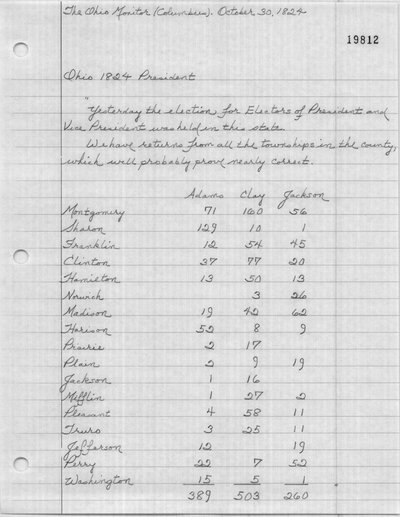 The Ohio Monitor (Columbus). October 30, 1824
19812
Ohio 1824 President
"Yesterday the election for Electors of President and
Vice President was held in this state.
We have returns from all the townships in the county,
which will probably prove nearly correct.
Adams Clay Jackson
Montgomery 71 160 56
Sharon 129 10 1
Franklin 12 54 45
Clinton 37 77 20
Hamilton 13 50 13
Norwich 3 26
Madison 19 42 62
Harison 52 8 9
Prairie 2 17
Plain 2 9 19
Jackson 1 16
Mifflin 1 27 2
Pleasant 4 58 11
Truro 3 25 11
Jefferson 12 19
Perry 22 7 52
Washington 15 5 1
389 503 260